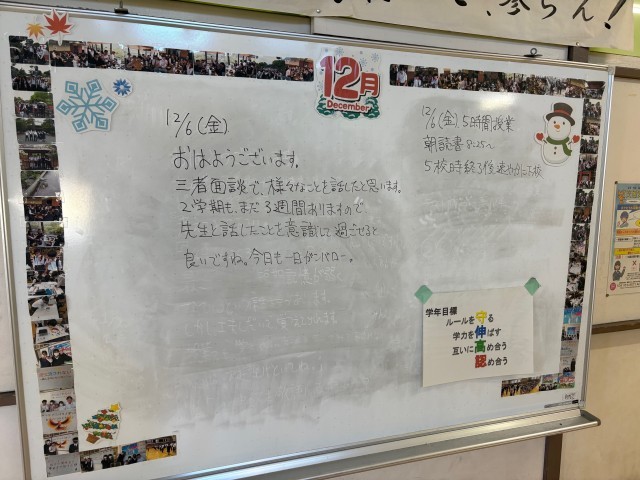 12月
December
12/6(金)
おはようございます。
三者面談で、様々なことを話したと思います。
2学期も、まだ3週間ありますので、
先生と話したことを意識して過ごせると
良いですね。今日も一日がンバロー。
12/6(金) 5時間授業
朝読書 8:25〜
5校時終了後速やかに下校
学年目標
ルールを守る
学力を伸ばす
互いに高め合う
認め合う